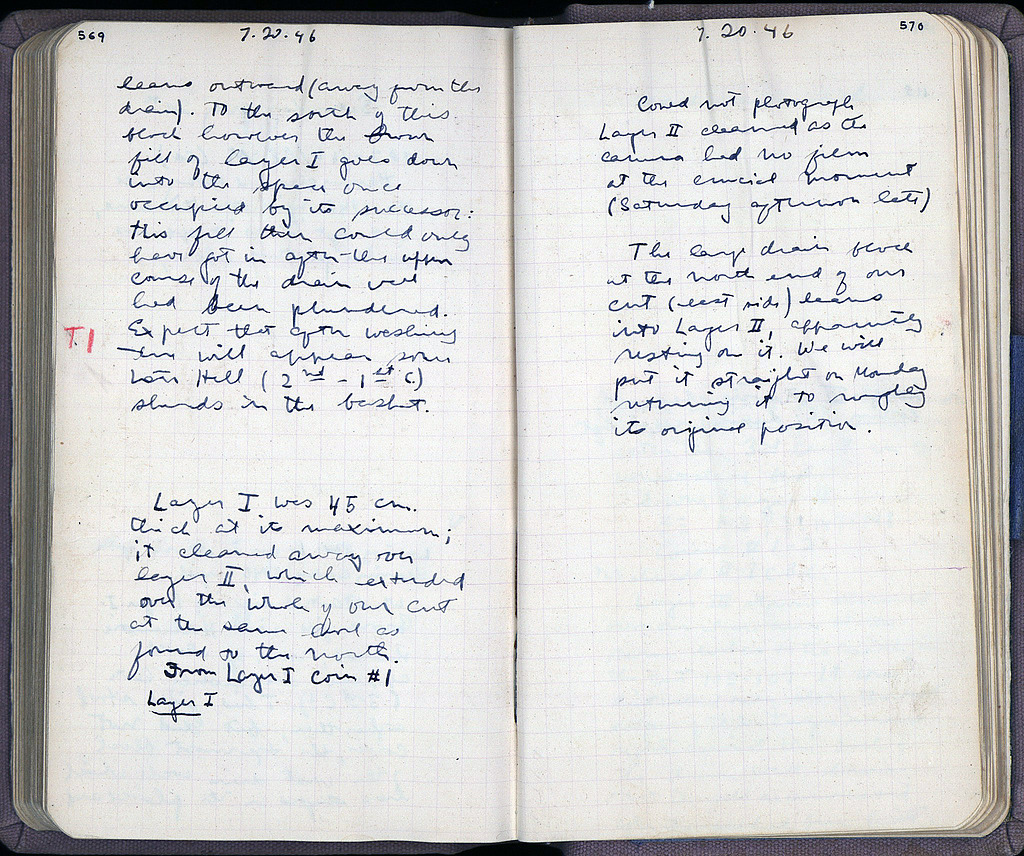 569
7.20.46
leans outward (away from the
drain). To the south of this
block however the brown
fill of layer I goes down
into the space once
occupied by its successor:
this fill then could only
have got in after the upper
course of the drain wall
had been plundered.
T.1
Expect that after washing
there will appear some
Late Hell (2nd - 1st C.)
sherds in the basket.
Layer I was 45 cm.
thick at its maximum;
it cleaned away over
layer II, which extended
over the whole of our cut
at the same level as
found to the north.
From Layer I coin #1
Layer I
570
7.20.46
Could not photograph
Layer II cleaned as the
camera had no film
at the crucial moment
(Saturday afternoon late)
The large drain block
at the north end of our
cut (east side) leans
into Layer II, apparently
resting on it. We will
put it straight on Monday
returning it to roughly
its original position.